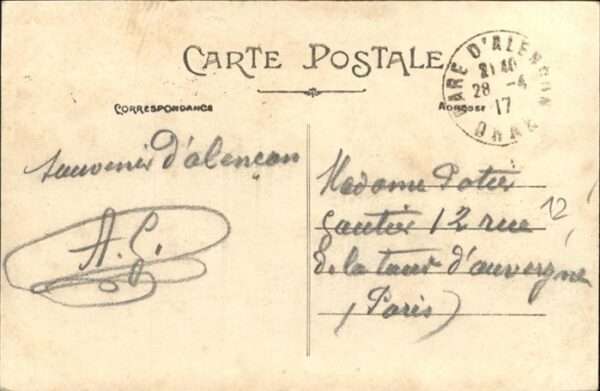 CARTE POSTALE
GARE D'ALENÇON
21 40
28 - 4
17
ORNE
CORRESPONDANCE
ADRESSE
Souvenir d'alencon
A. C.
Madame Potier
Gautier 12 rue
12
de la tour d'auvergne
(Paris)